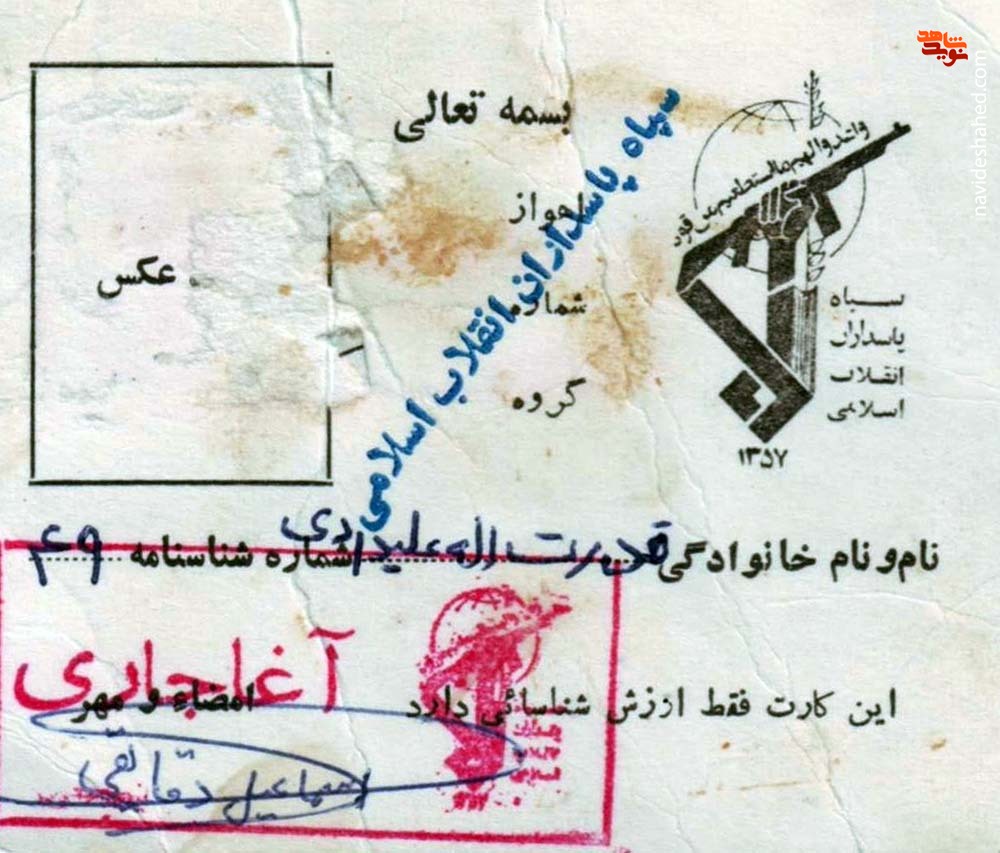 نوید شاهد
navideshahed.com
بسمه تعالی
سپاه پاسداران انقلاب اسلامی
جواز
شماره
گروه
عکس
واعدوا لهم ما استطعتم من قوه
سپاه
پاسداران
انقلاب
اسلامی
۱۳۵۷
نام و نام خانوادگی قدرت اله علیدادی شماره شناسنامه ۴۹
این کارت فقط ارزش شناسائی دارد
امضاء و مهر
آغاجاری
پاسداران
انقلاب
اسلامی
اسماعیل